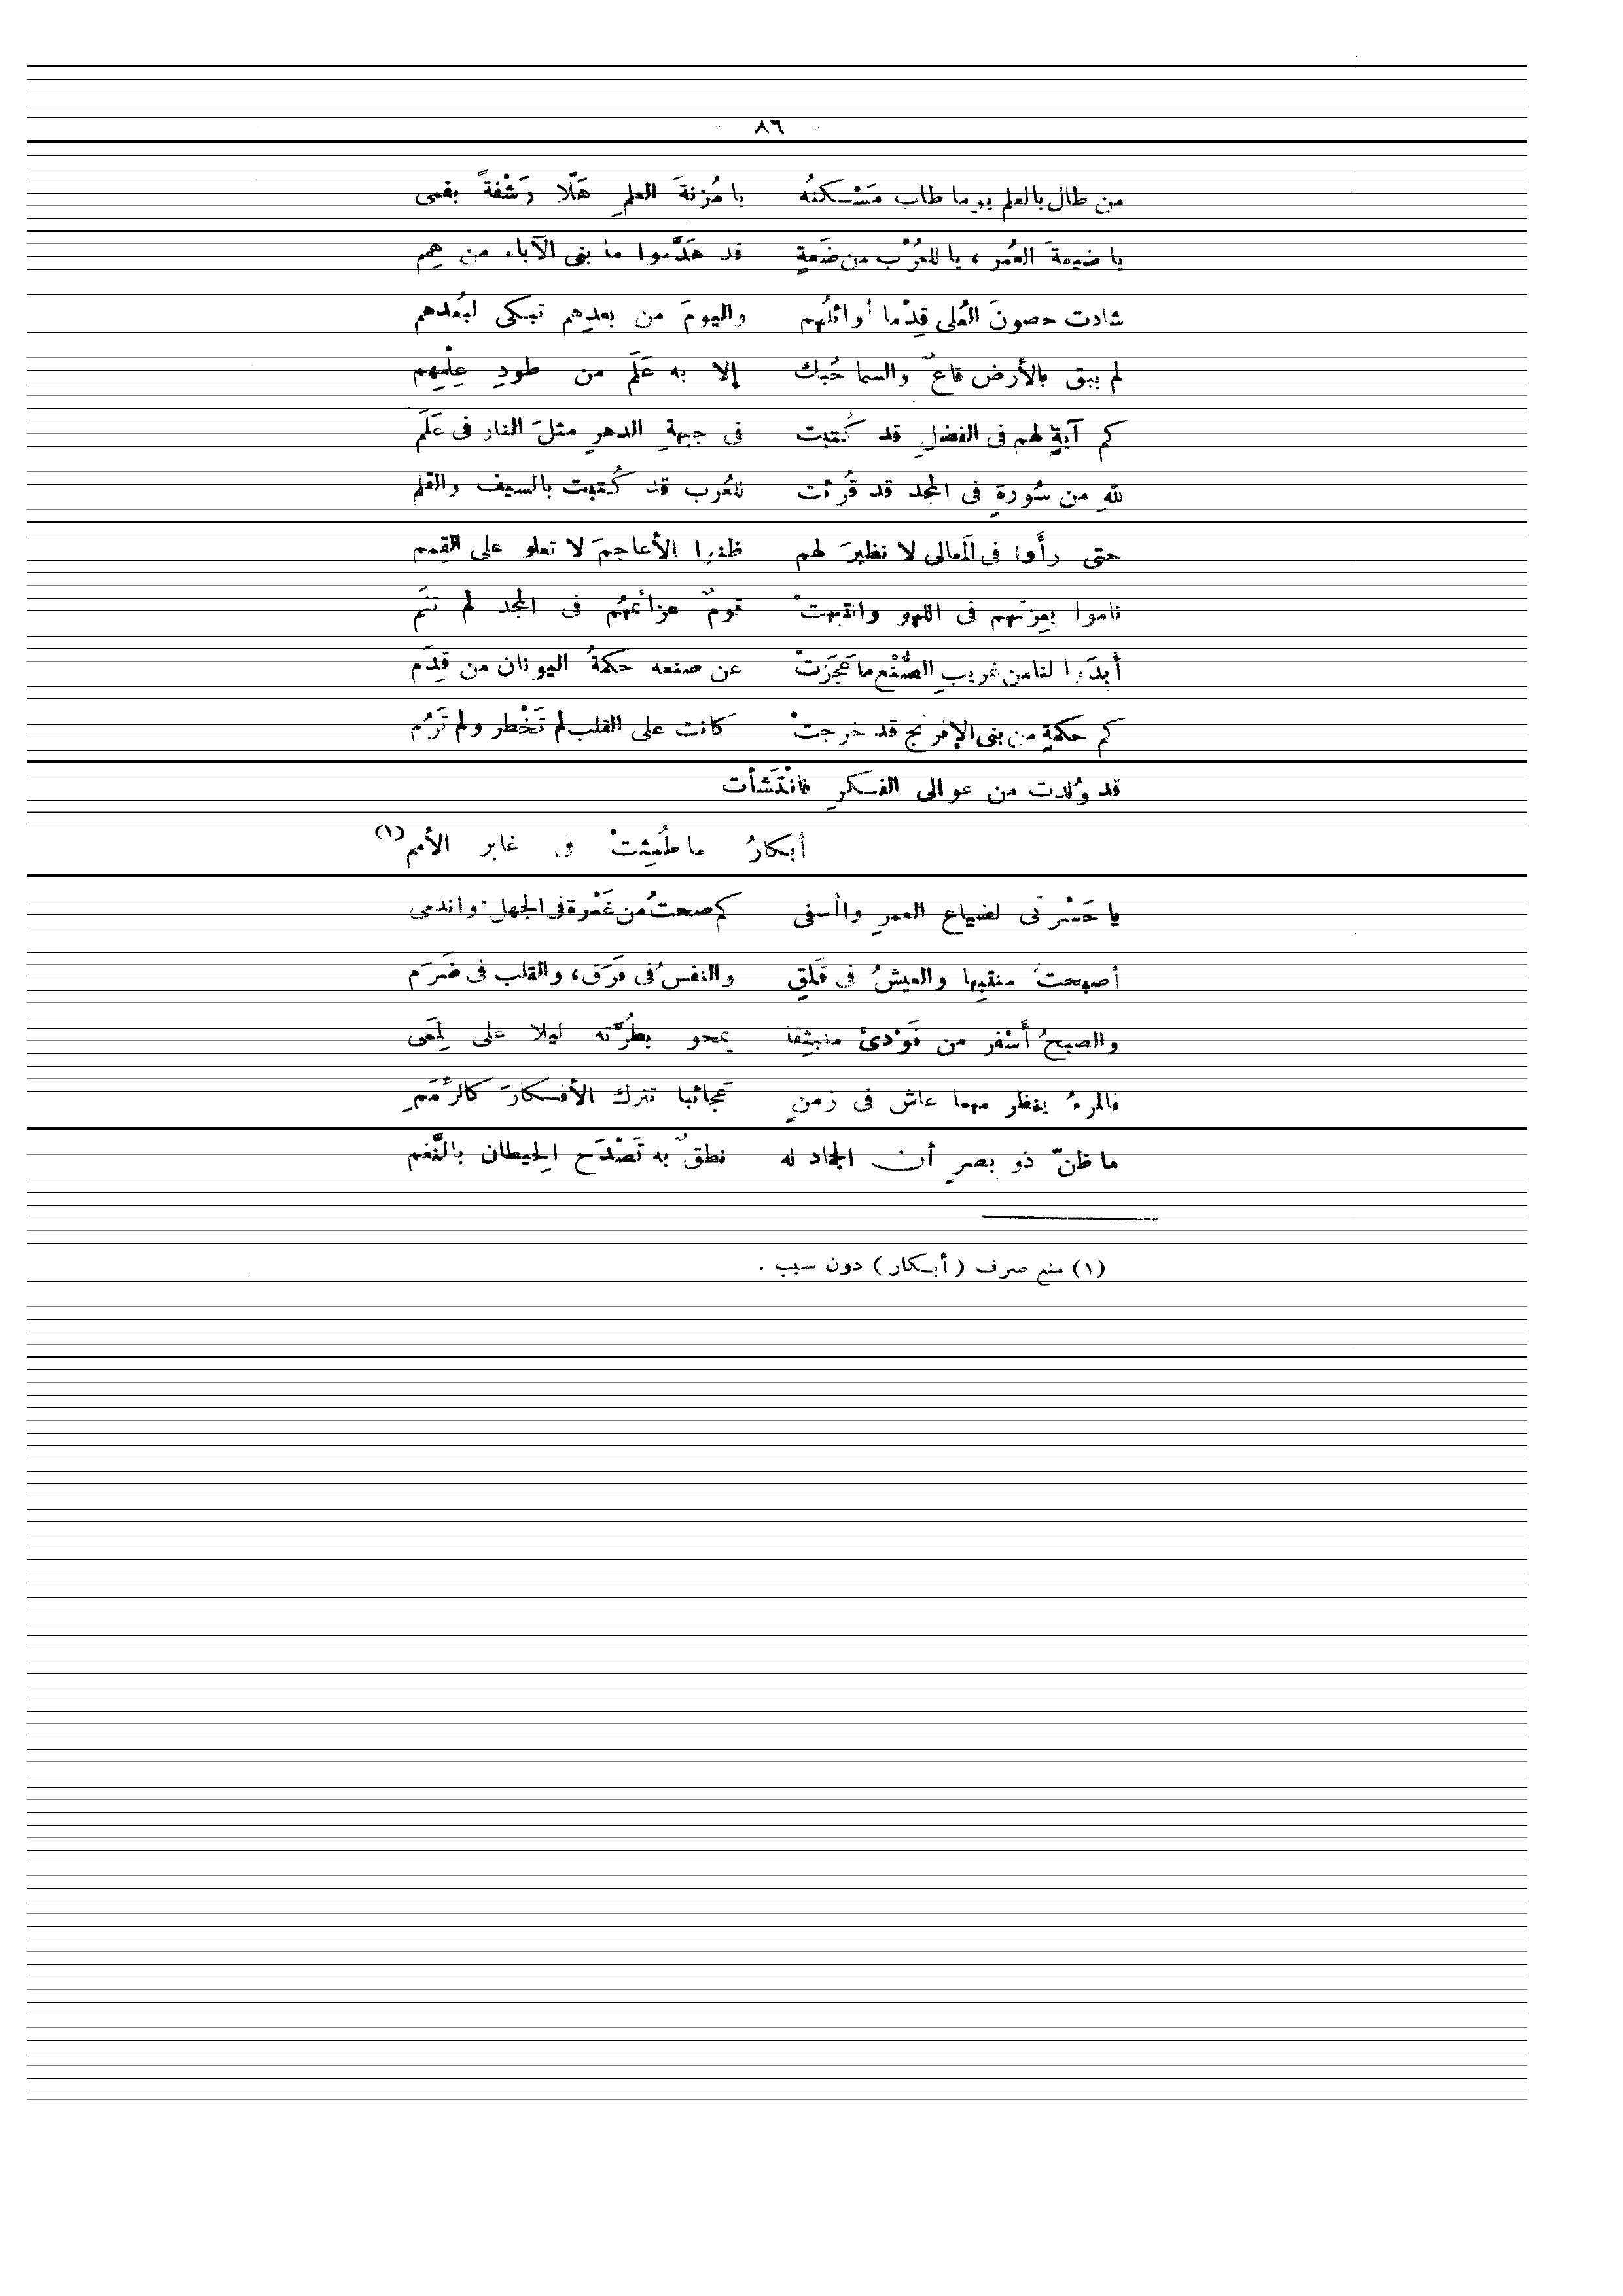 ٨٦
من طال بالعلم يوما طاب مَسْكنهُ يا مُزنةَ العلمِ هَلّا رَشْفةً بفمى
يا ضيعةَ العُمر ، يا للعُرْب من ضَعةٍ قد هَدَّموا ما بنى الآباء من هِمم
شادت حصونَ العُلى قِدْما أوائلُهم واليومَ من بعدِهم تبكى لبُعدهم
لم يبق بالأرض قاعٌ والسما حُبك إلا به عَلَم من طودِ عِلْمِهم
كم آيةٍ لهم فى الفضلِ قد كُتبت فى جبهةِ الدهرِ مثلَ النار فى عَلَم
للهِ من سُورةٍ فى المجد قد قُرئت للعُرب قد كُتبت بالسيف والقلم
حتى رأَوا فى المَعالى لا نظيرَ لهم ظنوا الأعاجمَ لا تعلو على القِمم
ناموا بعِزّهم فى اللهو وانتبهتْ قومٌ عزائمهُم فى المجد لم تنَم
أَبدَوا لنا من غريبِ الصُّنْع ما عَجَزتْ عن صنعه حكمةُ اليونان من قِدَم
كم حكمةٍ من بنى الإفرنج قد خرجتْ كانت على القلب لم تَخْطر ولم تَرُم
قد وُلدت من عوالى الفكرِ فانْتَشأت
أبكارُ ما طُمِثتْ فى غابر الأمم (١)
يا حَسْرتى لضياع العمرِ واأسفى كم صحتُ من غَمْرة فى الجهل واندمى
أصبحتُ منتبِها والعيشُ فى قَلَقٍ والنفسُ فى فَرَق، والقلب فى ضَرَم
والصبحُ أَسْفر من فَوْدىَّ منبثِقا يمحو بطُرَّته ليلا على لِمَمى
فالمرءُ ينظر مهما عاش فى زمنٍ عَجائبا تترك الأفكارَ كالرِّمَمِ
ما ظنّ ذو بصرٍ أن الجماد له نطقٌ به تَصْدَح الحِيطان بالنَّغم
(١) منع صرف (أبكار) دون سبب .